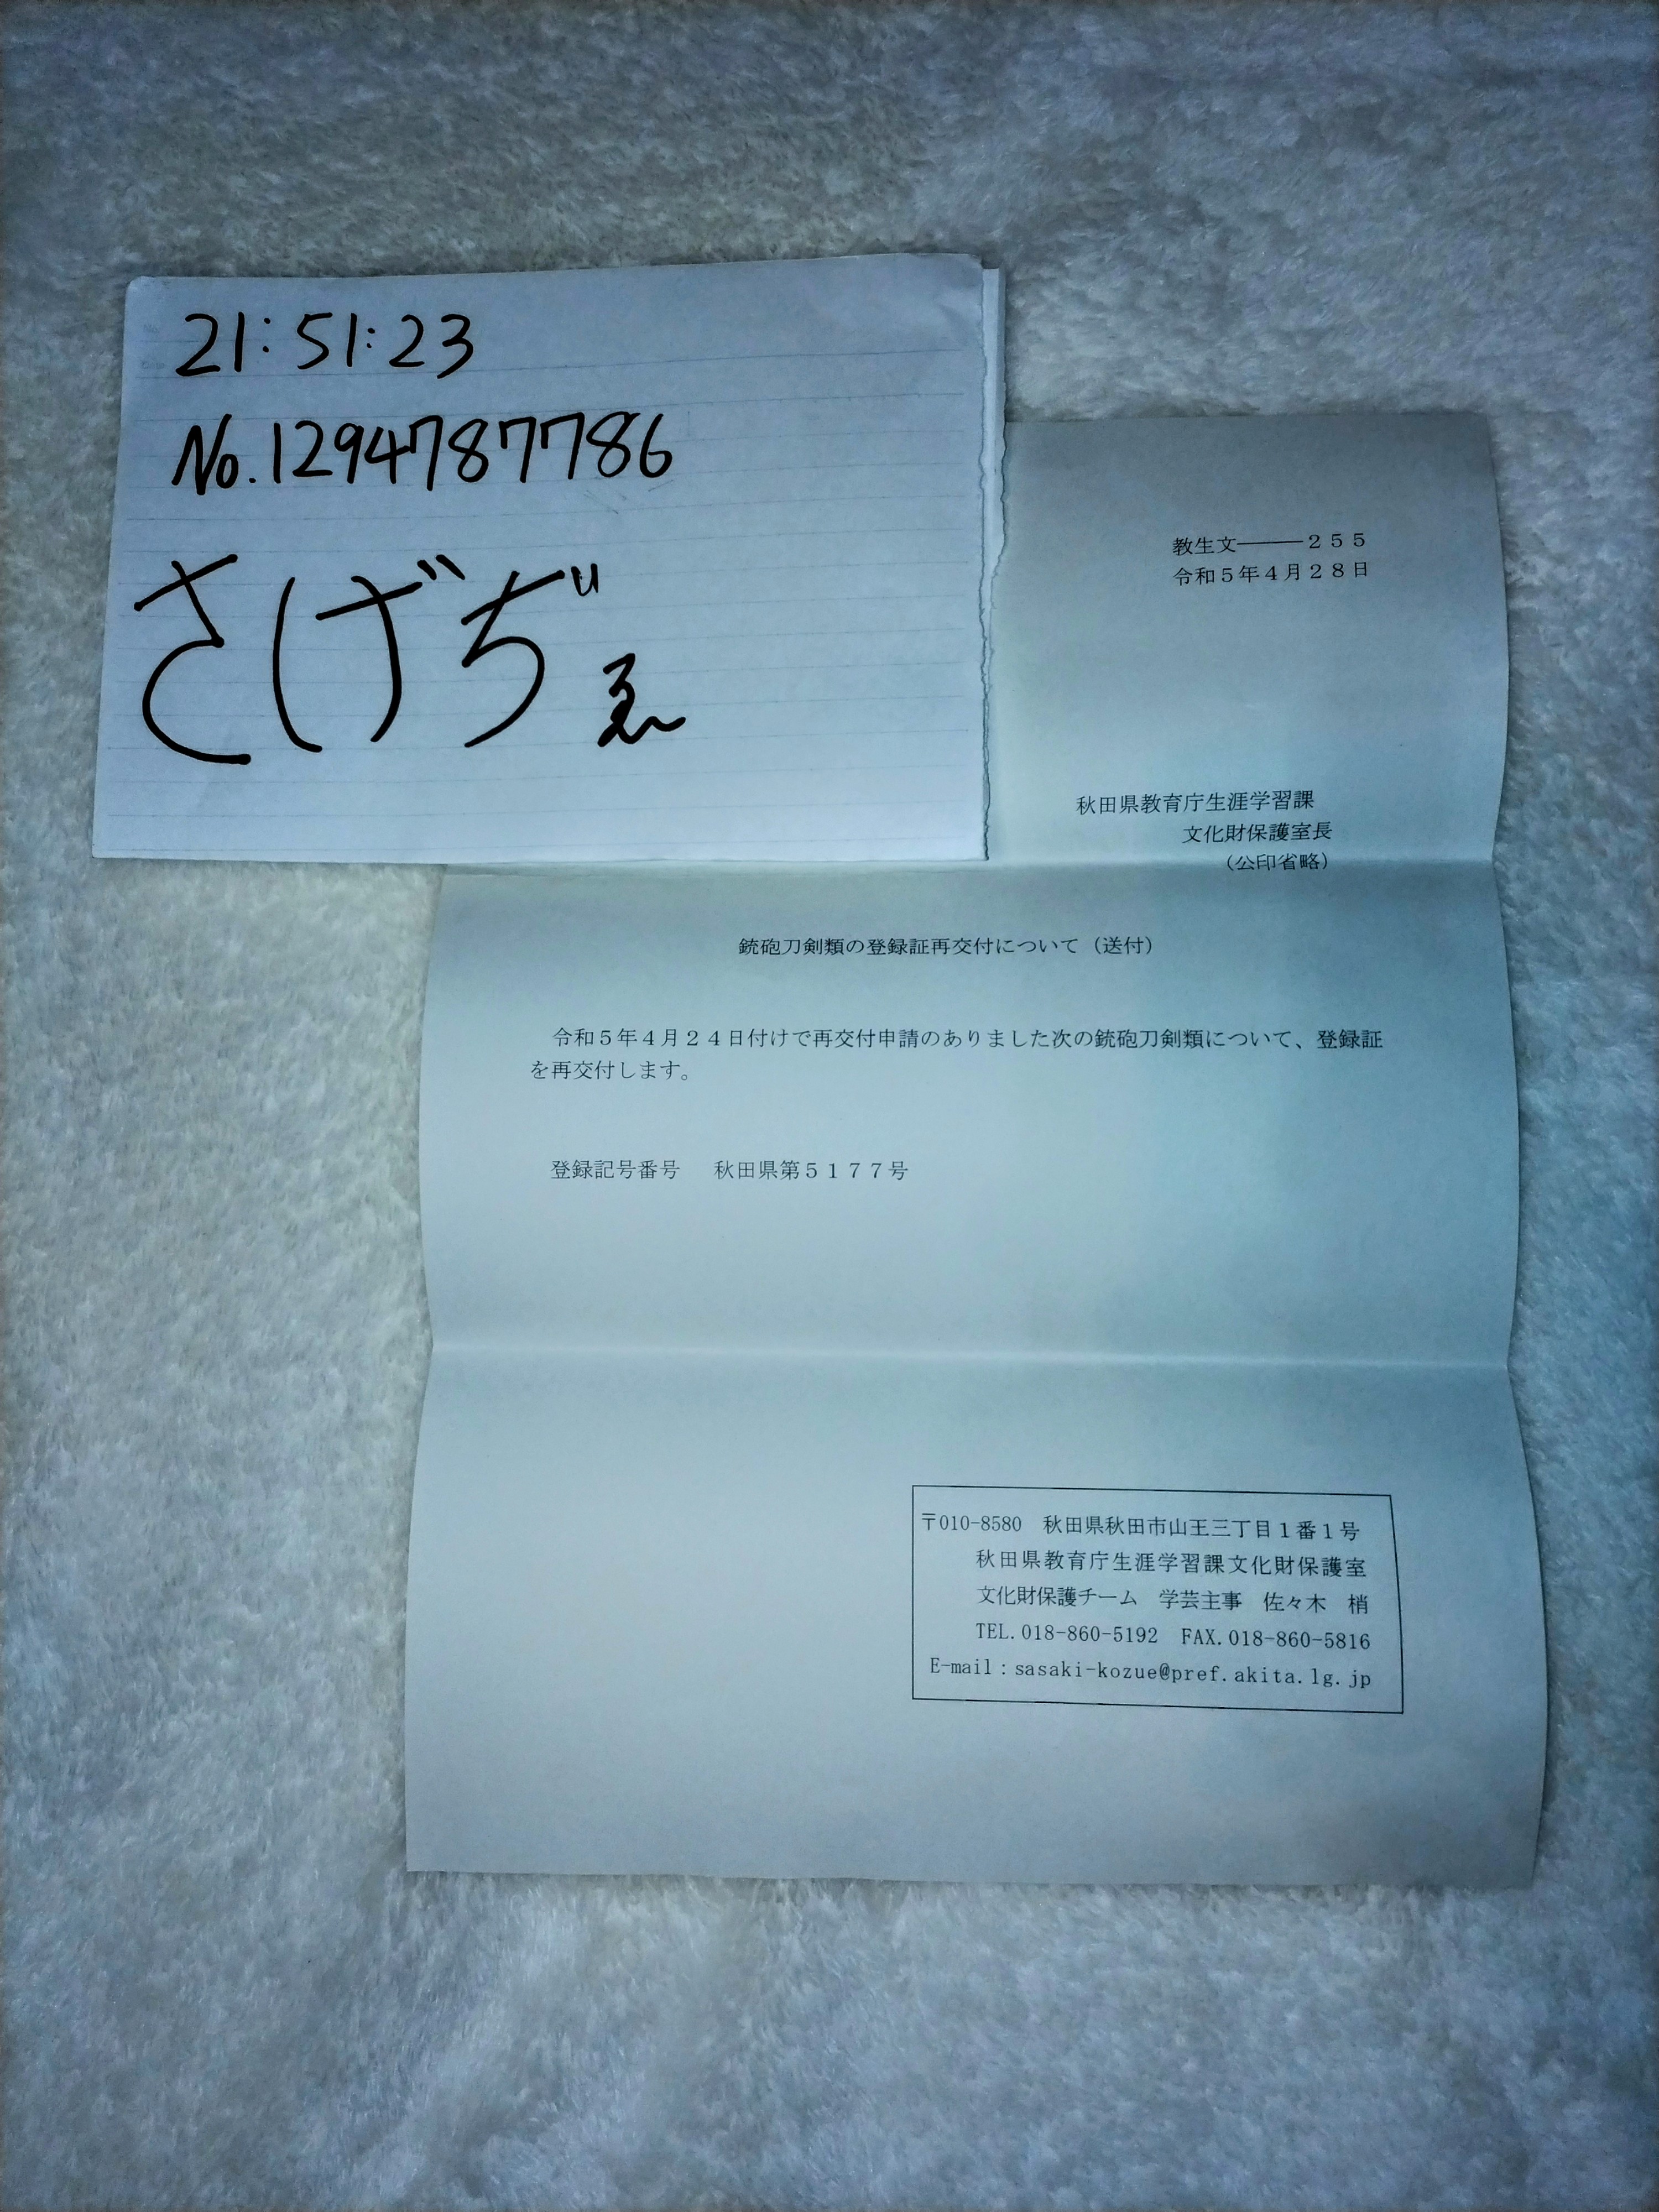 21:51:23
No.1294787786
さげぢゑ
教生文―――255
令和5年4月28日
秋田県教育庁生涯学習課
文化財保護室長
(公印省略)
銃砲刀剣類の登録証再交付について(送付)
令和5年4月24日付けで再交付申請のありました次の銃砲刀剣類について、登録証
を再交付します。
登録記号番号 秋田県第5177号
〒010-8580 秋田県秋田市山王三丁目1番1号
秋田県教育庁生涯学習課文化財保護室
文化財保護チーム 学芸主事 佐々木 梢
TEL.018-860-5192 FAX.018-860-5816
E-mail:sasaki-kozue@pref.akita.lg.jp